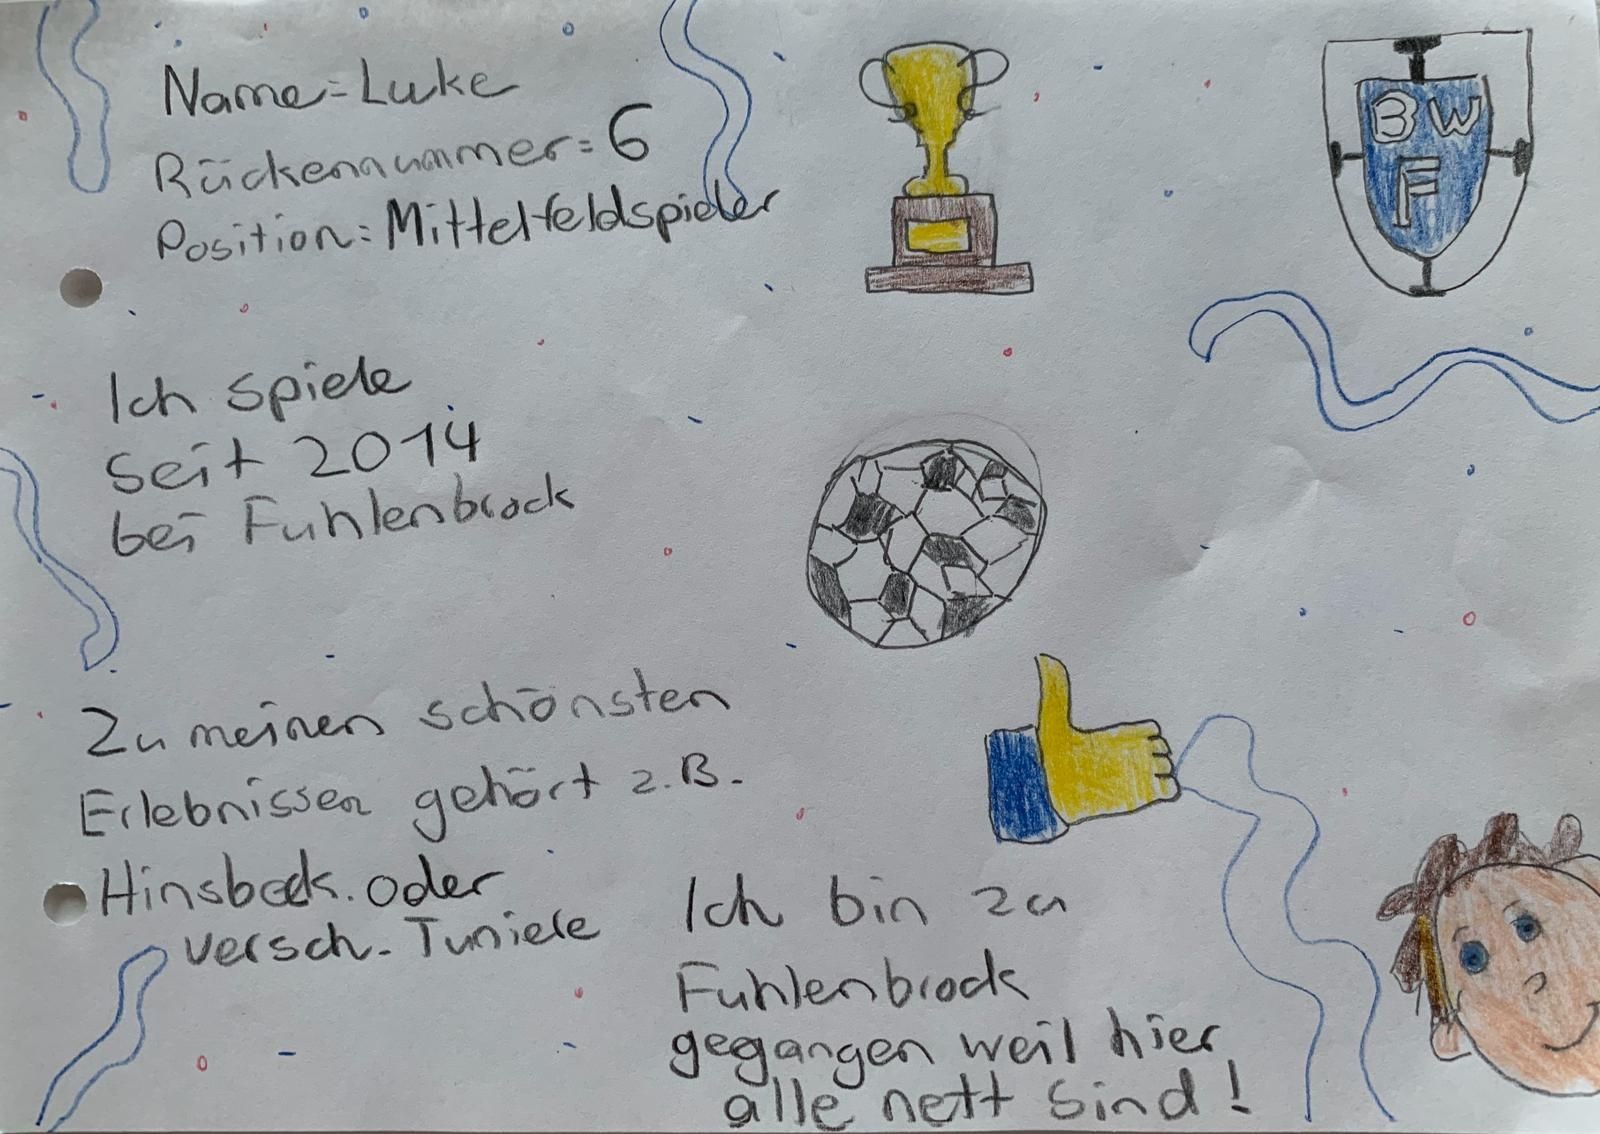 Name=Luke
Rückennummer=6
Position=Mittelfeldspieler
BW
F
Ich spiele
seit 2014
bei Fuhlenbrock
Zu meinen schönsten
Erlebnissen gehört z.B.
Hinsbeck. oder
versch. Tuniere
Ich bin zu
Fuhlenbrock
gegangen weil hier
alle nett sind!